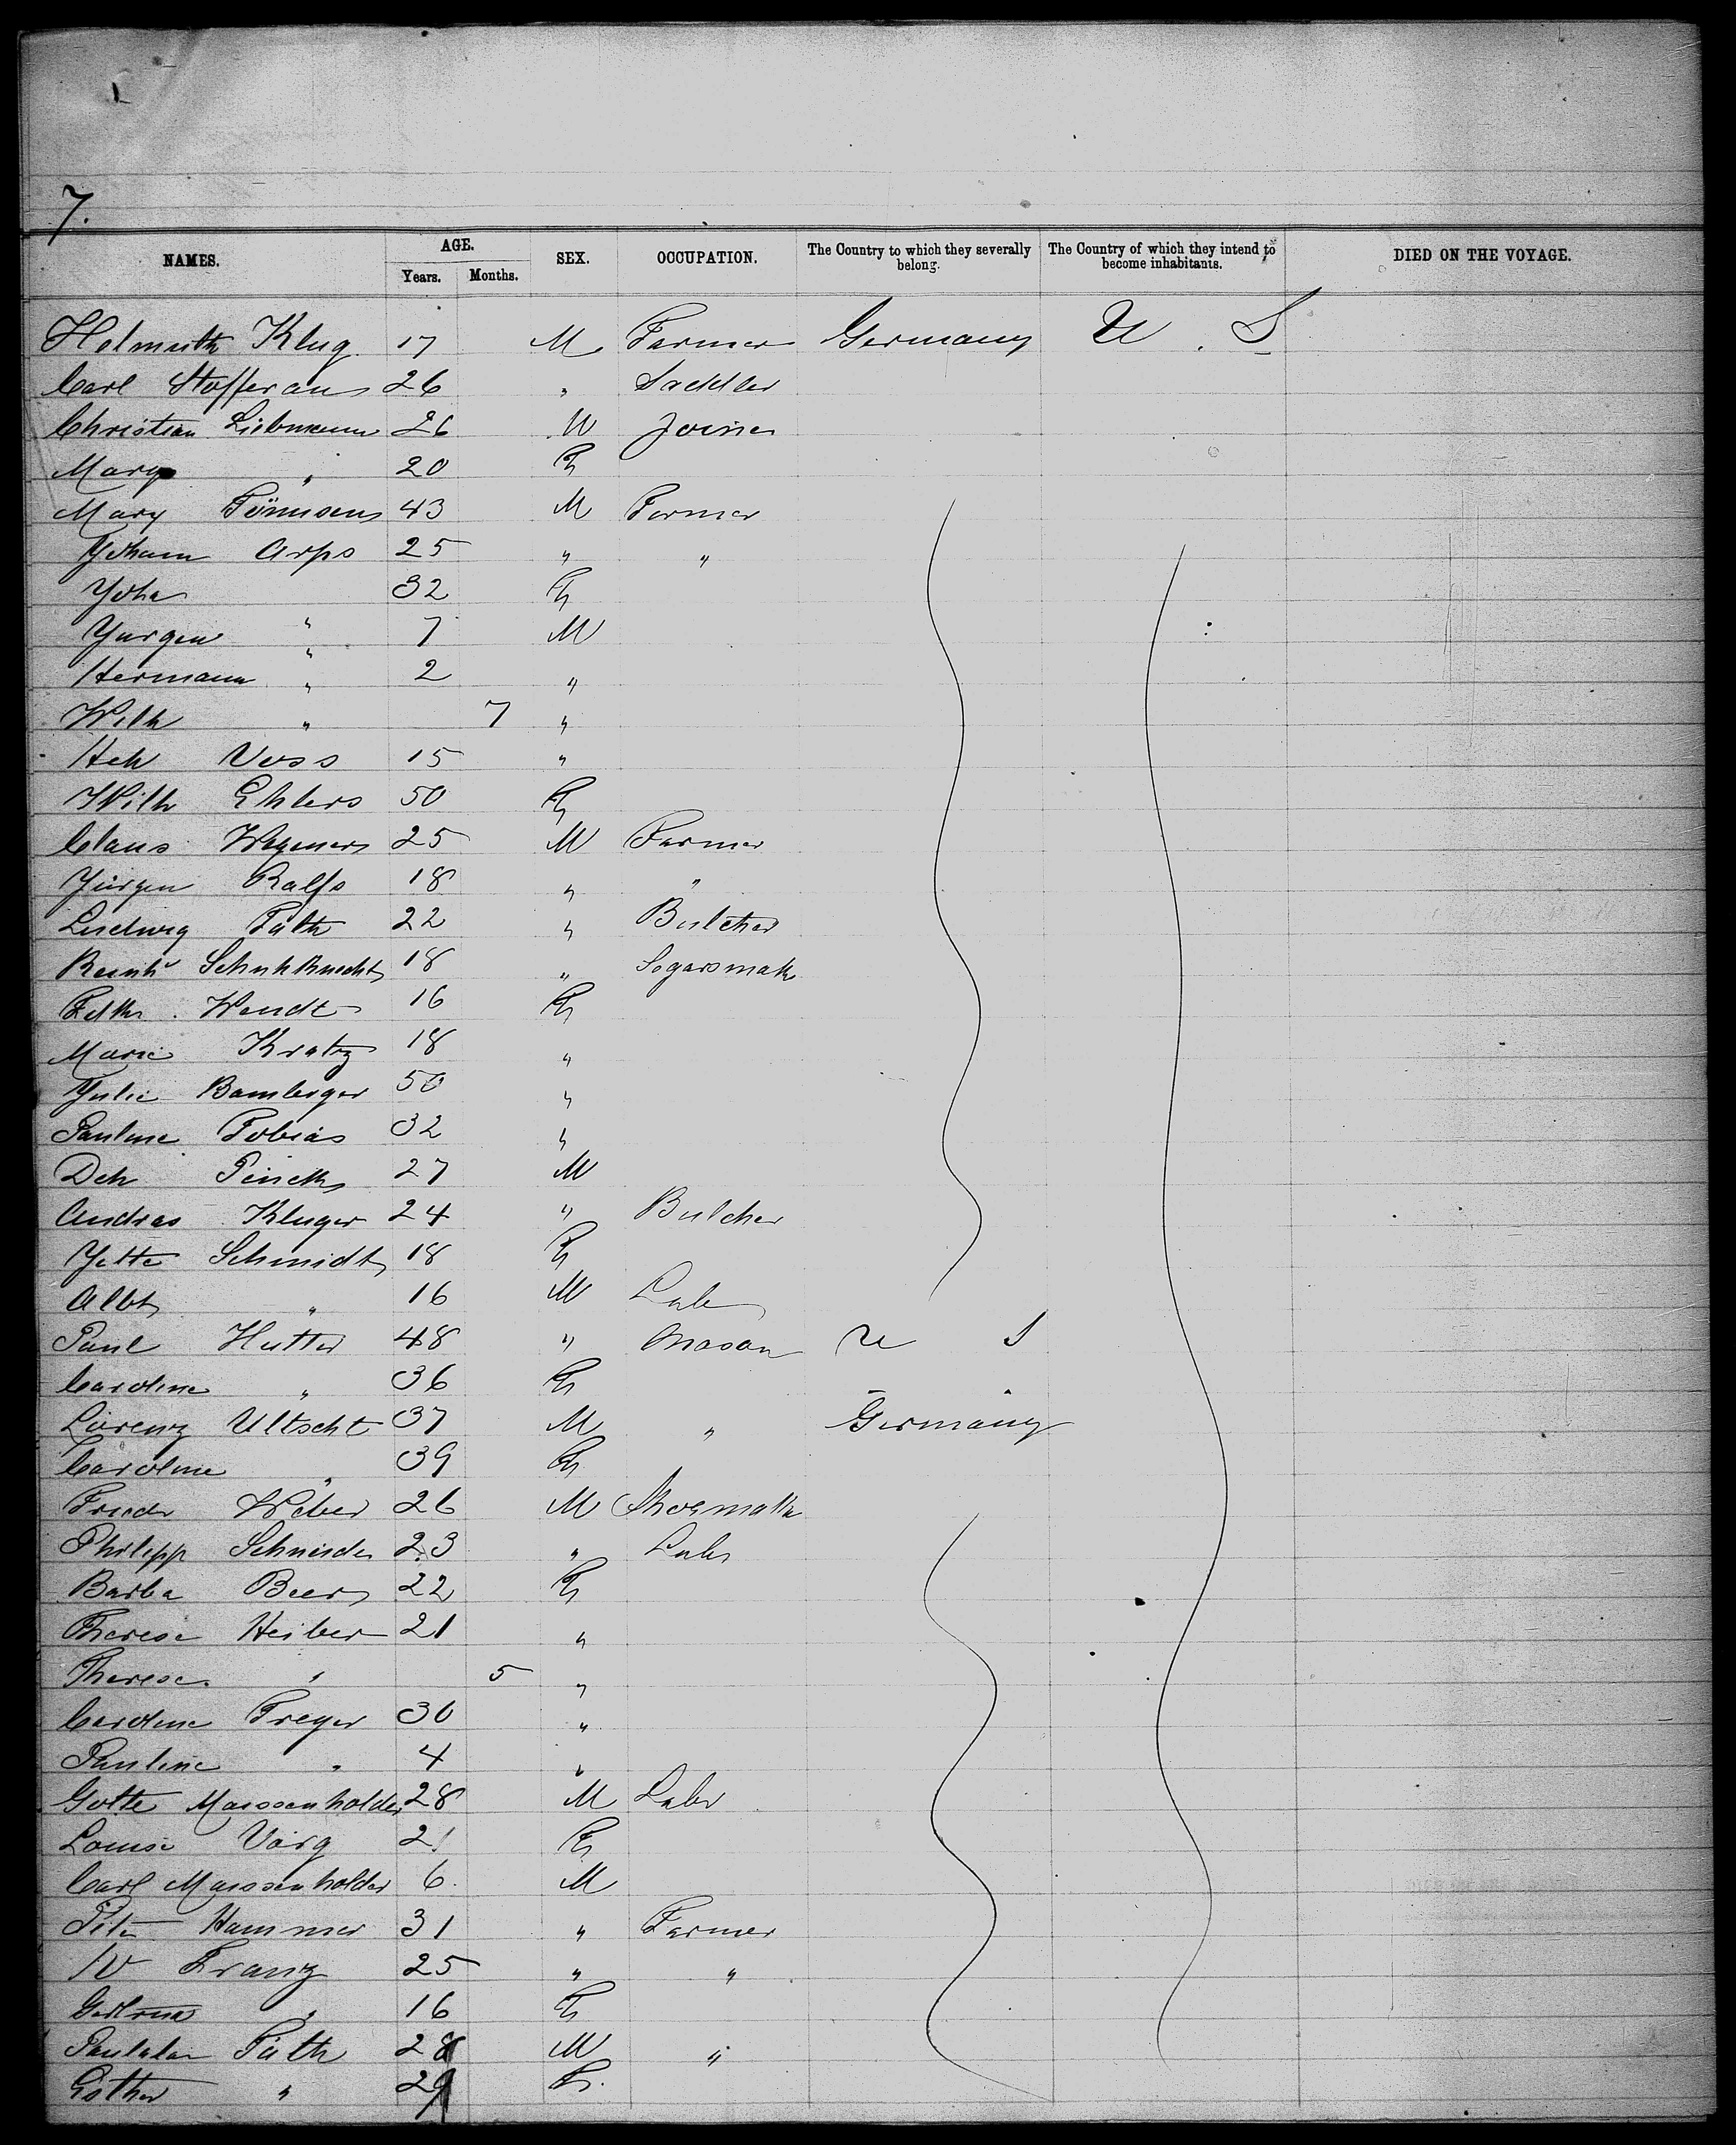 7.
NAMES. AGE. Years. Months. SEX. OCCUPATION. The Country to which they severally belong. The Country of which they intend to become inhabitants. DIED ON THE VOYAGE.
Helmuth Klug 17 M Farmer Germany U. S
Carl Stofferan 26 " Saddler
Christian Liebmann 26 M Joiner
Mary " 20 F
Mary Tönnsen 43 M Farmer
Johann Arps 25 " "
Joha 32 F
Jurgen " 7 M
Hermann " 2 "
Wilh " 7 "
Hch Voss 15 "
Wilh Ehlers 50 F
Claus Wegener 25 M Farmer
Jürgen Ralfs 18 " "
Ludwig Fath 22 " Butcher
Reinh Schuhknecht 18 " Segarsmak
Wendt 16 F
Marie Kratz 18 "
Julie Bamberger 50 "
Pauline Tobias 32 "
Dch 27 M
Andras Kluger 24 " Butcher
Jette Schmidt 18 F
Albt " 16 M Labr
Paul Hutter 48 " Mason U S
Caroline " 36 F
Lorenz Ultscht 37 M " Germany
Caroline " 39 F
Friedr Weber 26 M Shoemak
Philipp Schneider 23 " Labr
Barba Beer 22 F
Therese Heiber 21 "
Therese " 5 "
Caroline Treyer 30 "
Pauline " 4 "
Gotte Maissenholder 28 M Labr
Louise Varg 21 F
Carl Maissenholder 6 M
Peter Hammer 31 " Farmer
W Franz 25 " "
" 16 F
Fath 28 M "
Esther " 29 F